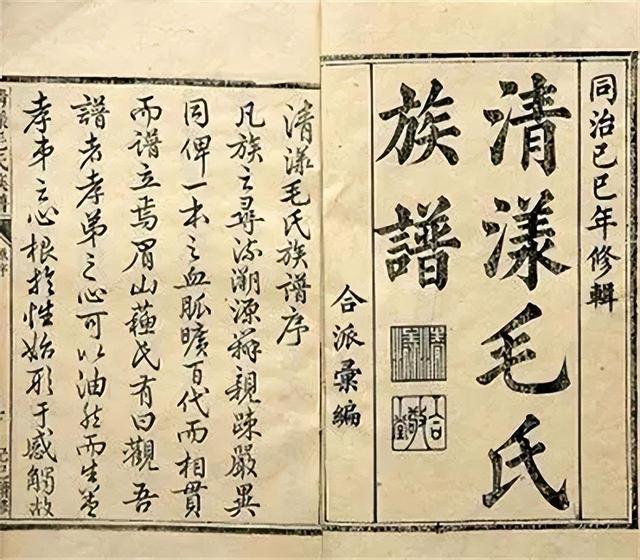 同治己巳年修輯
清漾毛氏
族譜
合派彙編
清漾毛氏族譜序
凡族之尋流溯源辯親疎嚴異
同俾一本之血脈曠百代而相貫
而譜立焉眉山蘓氏有曰觀吾
譜者孝弟之心可以油然而生蓋
孝弟之心根於性始形于感觸故
清漾毛氏族譜